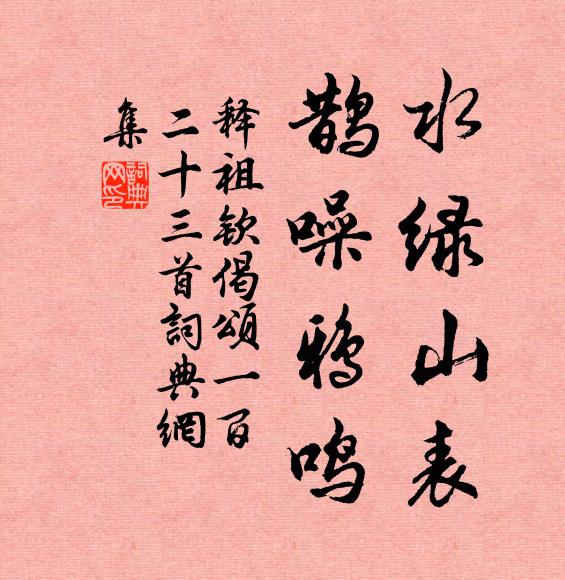 水绿山表
鹊噪鸦鸣
释祖钦偈颂一百
二十三首詞典網
集
詞典
网印